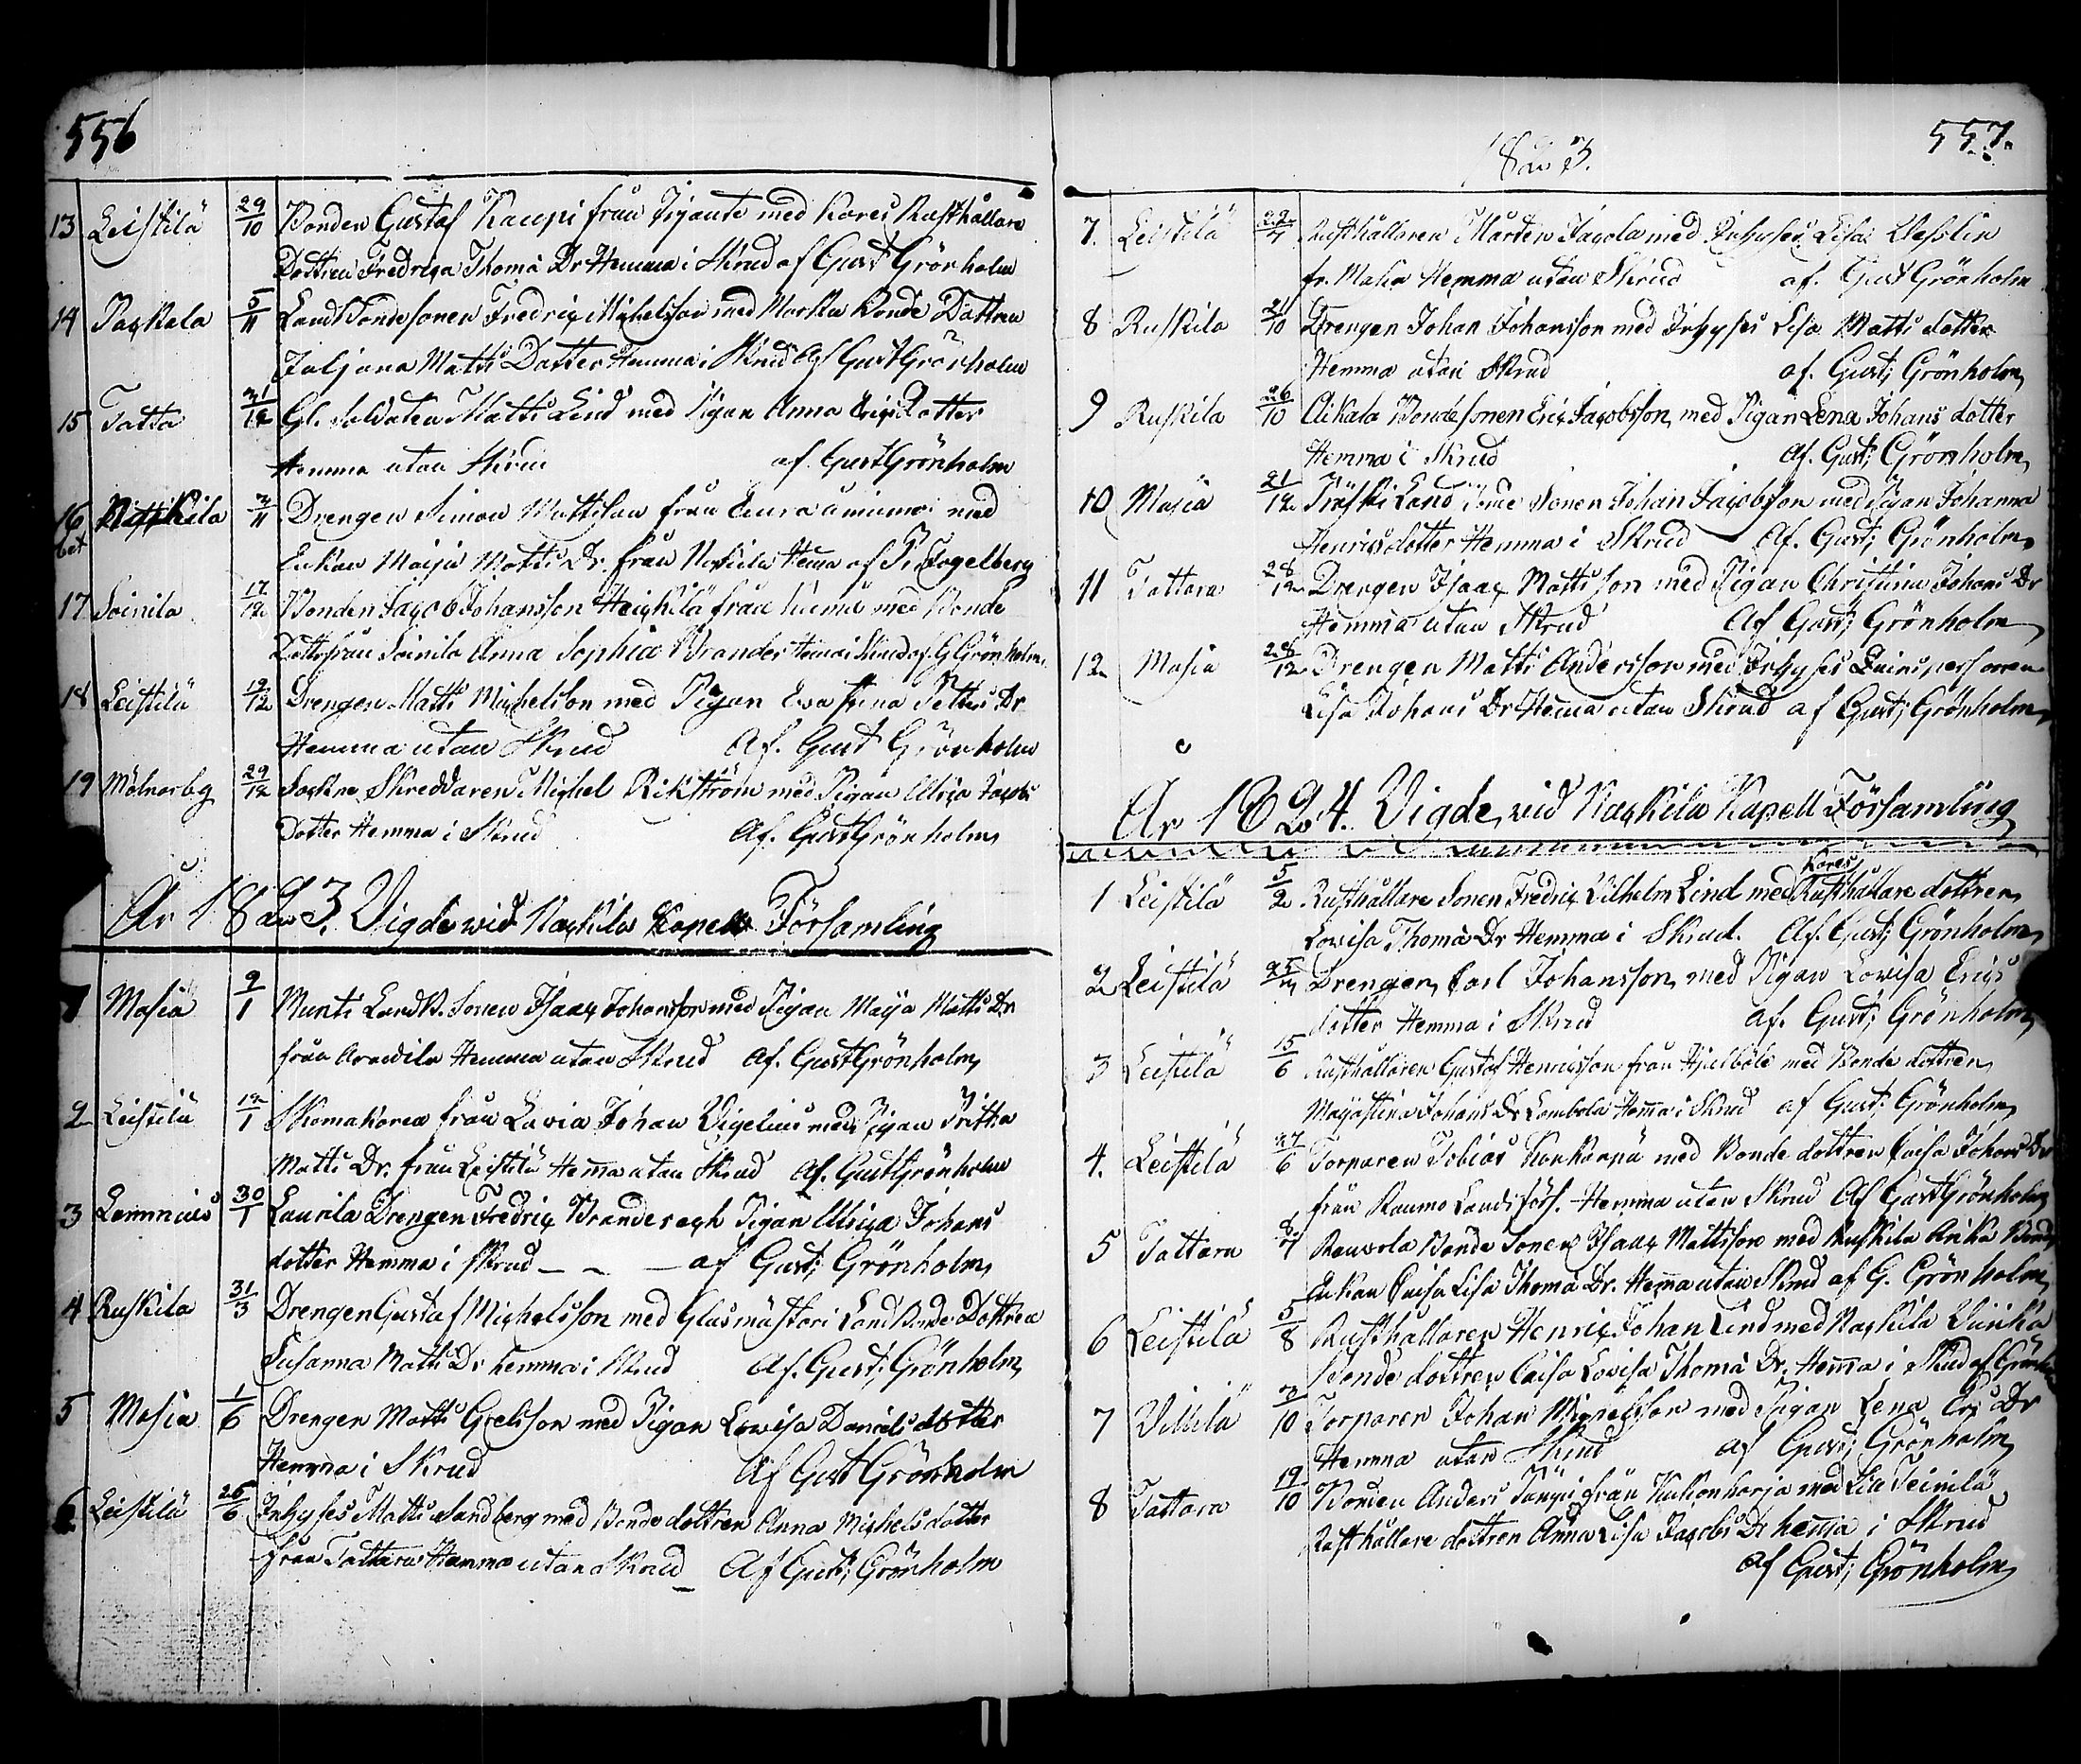 556
13 Leistilä 29/10 Bonden Gustaf Kaupi från med Kares Rusthållare
Dottren Fredrica Thomä Dr Hemma i Skrud af Gust Grönholm
14 Paskala 5/11 Landbondesonen Fredric Michelsson med Bonde Dottren
Juljana Matts Dotter Hemma i Skrud af Gust Grönholm
15 Tatta Gl. Soldaten Matts Lind med Pigan Anna Erics Dotter
Hemma utan Skrud af. Gust Grönholm
16 Drengen Simon Mattsson från Eura med
Enkan Maija Matts Dr. från Nakkila Hema af Fogelberg
17 Soinila 17/12 Bonden Jacob Johansson Heickilä från med Bonde
Dottr från Soinila Anna Sophia Brander Hema i Skrud af. G Grönholm.
18 Leistilä 19/12 Drengen Matts Michelsson med Pigan Eva Stina Petters Dr
Hemma utan Skrud Af. Gust Grönholm
19 Mölnarbg 29/12 Sockne Skreddaren Michel Rikström med Pigan Ulrica Jacobs
Dotter Hemma i Skrud Af. Gust Grönholm
År 1823. Vigde vid Nackila Kapell Församling
1 Masia 9/1 Munti Landb. Sonen Isaac Johansson med Pigan Maija Matts Dr
från Arawila Hemma utan Skrud Af. Gust Grönholm
2 Leistilä 12/1 Skomakaren från Lavia Johan Vigelius med Pigan Britta
Matts Dr. från Leistilä Hema utan Skrud Af. Gust Grönholm
3 Lammais 30/1 Laurila Drengen Fredric Brander och Pigan Ulrica Johans
dotter Hemma i Skrud — — — af Gust; Grönholm
4 Ruskila 31/3 Drengen Gustaf Michelsson med Glasmästari Landbonde Dottren
Susanna Matts Dr hemma i Skrud Af. Gust; Grönholm
5 Masia 1/6 Drengen Matts Grelsson med Pigan Lovisa Daniels dotter
Hemma i Skrud Af Gust Grönholm
6 Leistilä 26/6 Inhyses Matts Sandberg med Bonde dottren Anna Michels dotter
från Tattara Hemma utan Skrud Af Gust; Grönholm
557.
1823.
7. Leistilä Rusthållaren Mårten Jagola med Inhyses Lisa Wesslin
fr. Masia Hemma utan Skrud af. Gust Grönholm
8 Ruskila 21/10 Drengen Johan Johansson med Inhyses Lisa Matts dotter
Hemma utan Skrud af. Gust; Grönholm
9 Ruskila 26/10 Aikala Bondesonen Eric Jacobsson, med Pigan Lena Johans dotter
Hemma i Skrud Af. Gust; Grönholm
10 Masia 21/12 Träski Landbonde Sonen Johan Jacobsson med Pigan Johanna
Henricsdotter Hemma i Skrud Af. Gust; Grönholm
11 Tattara 28/12 Drengen Isaac Mattsson med Pigan Christina Johans Dr
Hemma utan Skrud Af Gust; Grönholm
12 Masia 28/12 Drengen Matts Andersson med Inhyses Quinspersonen
Lisa Johans Dr Hema utan Skrud af Gust; Grönholm
År 1824. Vigde, vid Nackila Kapell Församling
Kares
1 Leistilä 5/2 Rusthållare Sonen Fredric Vilhelm Lind med Rusthållare dottren
Lovisa Thomä Dr Hemma i Skrud. Af. Gust; Grönholm
2 Leistilä Drengen Carl Johansson, med Pigan Lovisa Erics
dotter Hemma i Skrud af. Gust; Grönholm
3 Leistilä 15/6 Rusthållaren Gustaf Henricsson från Hjulböle med Bonde dottren
Majastina Johans Dr Lambola Hema i Skrud af Gust; Grönholm
4. Leistilä 27/6 Torparen Tobias Konkarpä med Bonde dottren Caisa Johans Dr
från Raumo Lands förs. Hemma utan Skrud Af Gust Grönholm
5 Tattara 8/7 Rauvola Bonde Sonen Isaac Mattsson med Ruskila Anka Bonde
Enkan Caisa Lisa Thomä Dr. Hema utan Skrud af G. Grönholm
6 Leistilä 5/8 Rusthållaren Henric Johan Lind med Nackila
Bonde dottren Caisa Lovisa Thomä Dr. Hema i Skrud af Grönholm
7 Villilä 3/10 Torparen Johan Michelsson med Pigan Lena Erics Dr
Hemma utan Skrud af Gust; Grönholm
8 Tattara 19/10 Bonden Anders från Kukonharja med Lill Teinilä
Rusthållare dottren Anna Lisa Jacobs Dr hema i Skrud
af Gust; Grönholm